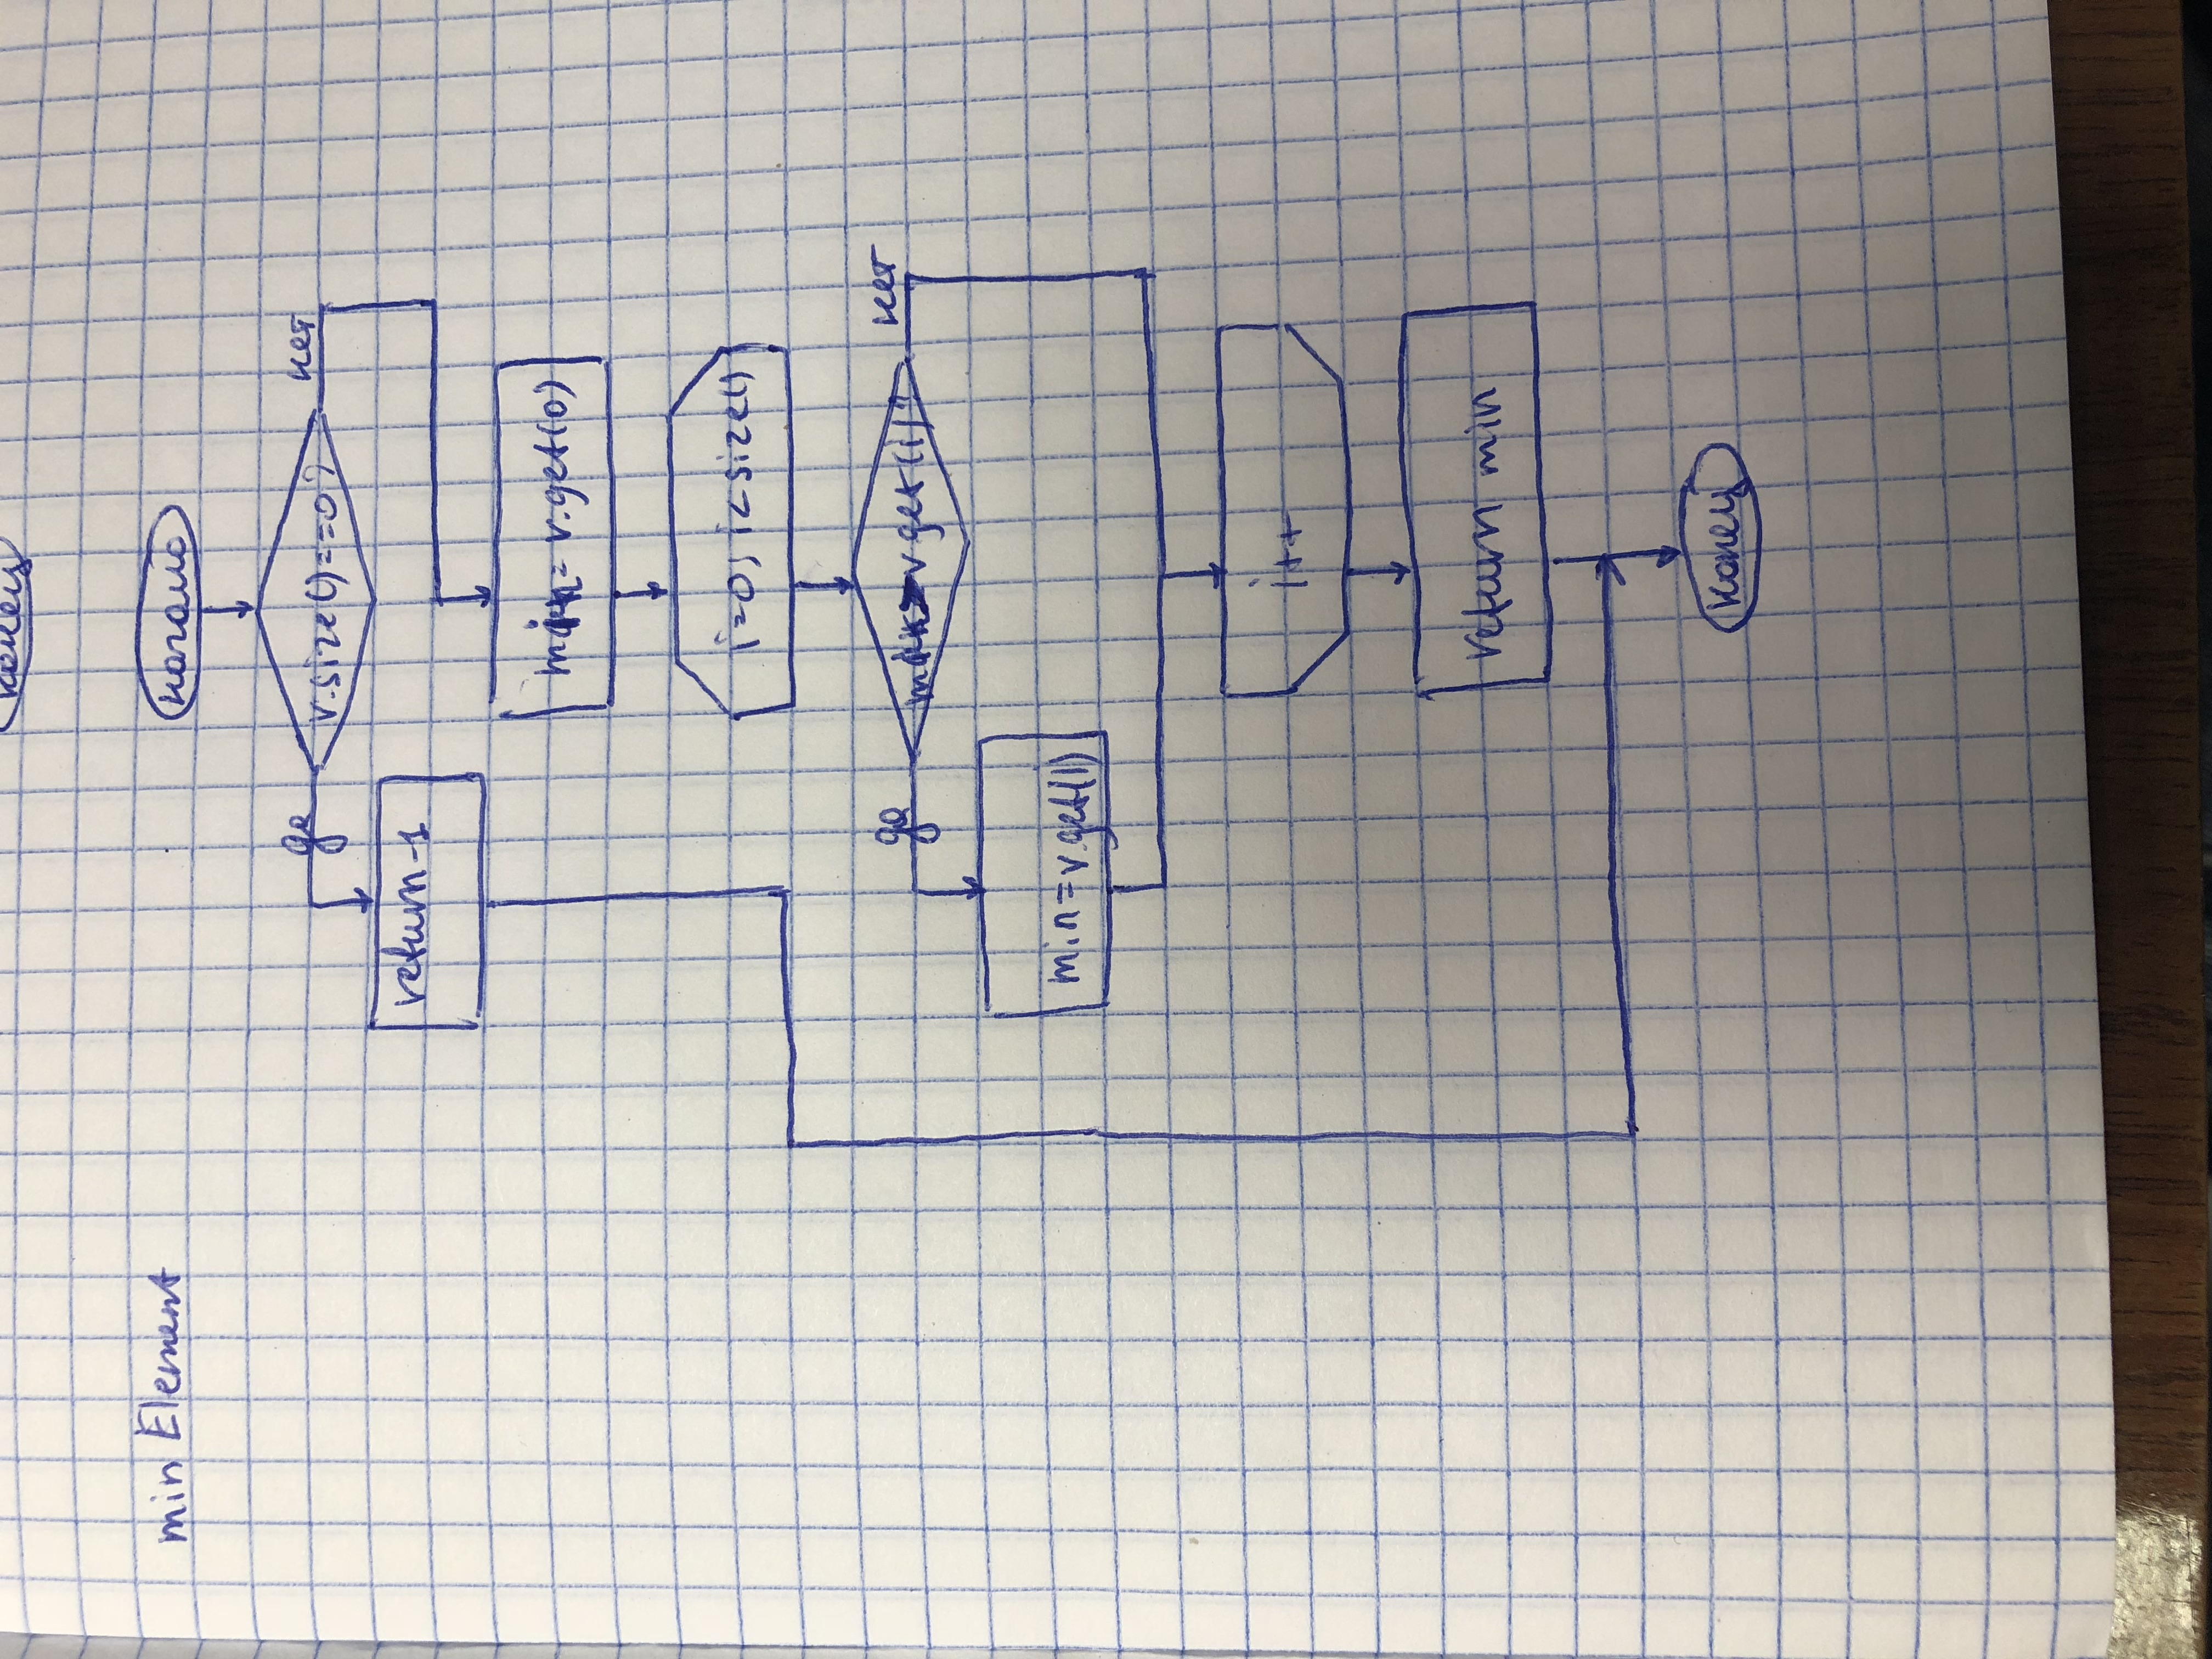 конец
min Element
начало
v.size()==0?
да
нет
return -1
min = v.get(0)
i=0; i<size()
min > v.get(i)?
да
нет
min = v.get(i)
i++
return min
конец